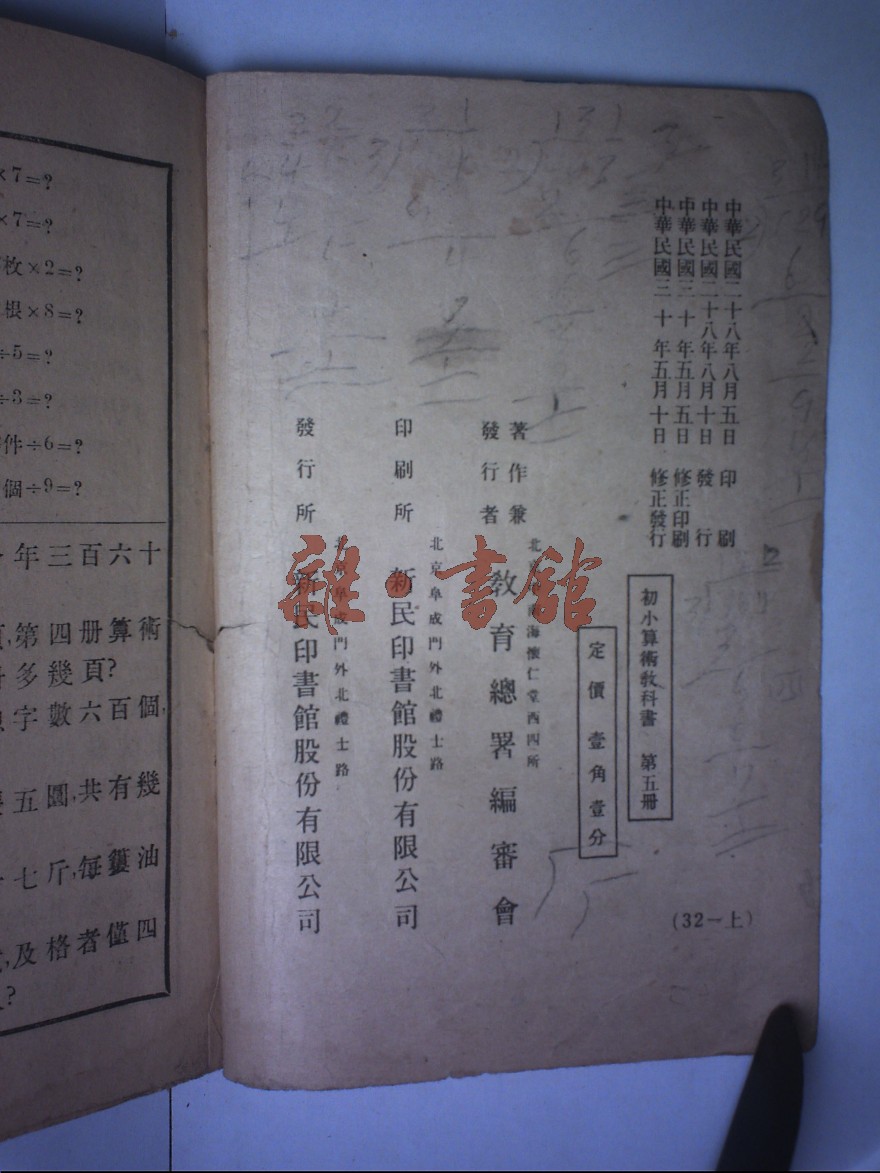 中華民國二十八年八月五日 印刷
中華民國二十八年八月十日 發行
中華民國三十年五月五日 修正印刷
中華民國三十年五月十日 修正發行
初小算術敎科書 第五册
定價壹角壹分
著作兼
發行者
敎育總署編審會
海懷仁堂西四所
印刷所
新民印書館股份有限公司
北京阜成門外北禮士路
發行所
新民印書館股份有限公司
阜成門外北禮士路
(32—上)
雜·書館
×7=?
×7=?
枚×2=?
根×8=?
÷5=?
÷3=?
件÷6=?
個÷9=?
年三百六十
第四册算術
多幾頁?
字數六百個,
五圓,共有幾
七斤,每簍油
及格者僅四
?